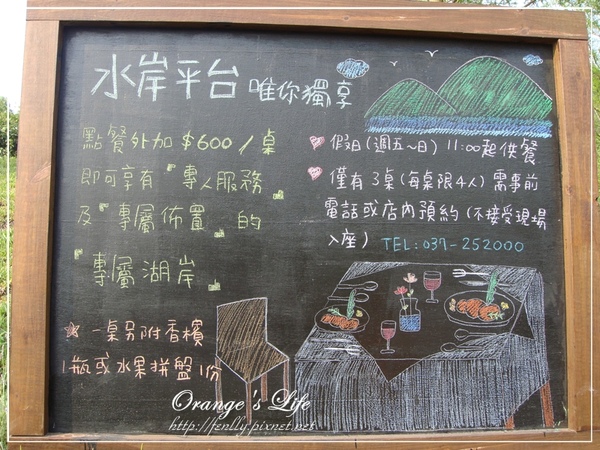 水岸平台 唯你獨享
點餐外加 $600／桌
即可享有『專人服務』
及『專屬佈置』的
『專屬湖岸』
☆ 一桌另附香檳
1瓶或水果拼盤1份
♥ 假日(週五~日) 11:00起供餐
♥ 僅有3桌(每桌限4人) 需事前
電話或店內預約(不接受現場
入座) TEL:037-252000
Orange's Life
http://fenlly.pixnet.net